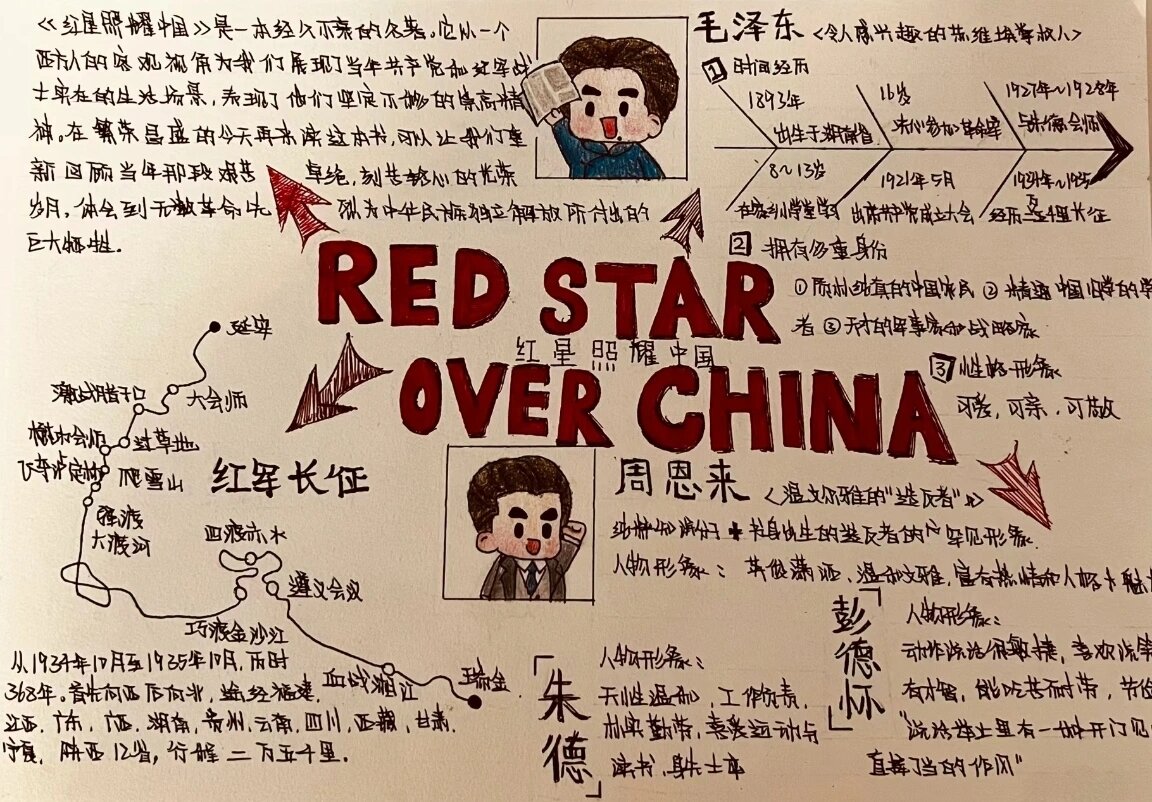 《红星照耀中国》是一本经久不衰的名著。它从一个
西方人的客观视角为我们展现了当年共产党和红军战
士实在的生活场景，表现了他们坚定不移的崇高精
神。在繁荣昌盛的今天再来读这本书，可以让我们重
新回顾当年那段艰苦卓绝，刻苦铭心的光荣
岁月，体会到无数革命先烈为中华民族独立解放所付出的
巨大牺牲。
毛泽东
<令人感兴趣的苏维埃掌权人>
1 时间经历
1893年
出生于湖南省
16岁
决心参加革命军
1927年~1928年
与朱德会师
8~13岁
在家乡小学堂学习
1921年5月
出席共产党成立大会
1934年~1935
经历二万五千里长征
2 拥有多重身份
①质朴纯真的中国农民 ②精通中国旧学的学
者 ③天才的军事家和战略家
3 性格形象
可爱，可亲，可敬
RED STAR
红星照耀中国
OVER CHINA
延安
大会师
激战腊子口
过草地
懋功会师
飞夺泸定桥
爬雪山
强渡
大渡河
红军长征
四渡赤水
遵义会议
巧渡金沙江
血战湘江
瑞金
从1934年10月至1935年10月，历时
368年。首先向西后向北，途经福建，
江西，广东，广西，湖南，贵州，云南，四川，西藏，甘肃，
宁夏，陕西12省，行程二万五千里。
周恩来
<温文尔雅的"造反者"》
纯粹知识分子+书香出生的造反者的罕见形象
人物形象：英俊潇洒、温和文雅，富有热情和人格
「朱德」
人物形象：
天性温和，工作负责，
朴实勤劳，喜爱运动与
读书，身先士卒
「彭德怀」
人物形象：
动作说话很敏捷，喜欢说
有才智，能吃苦而耐劳
"说话举止里有一种开门见
直接了当的作风"